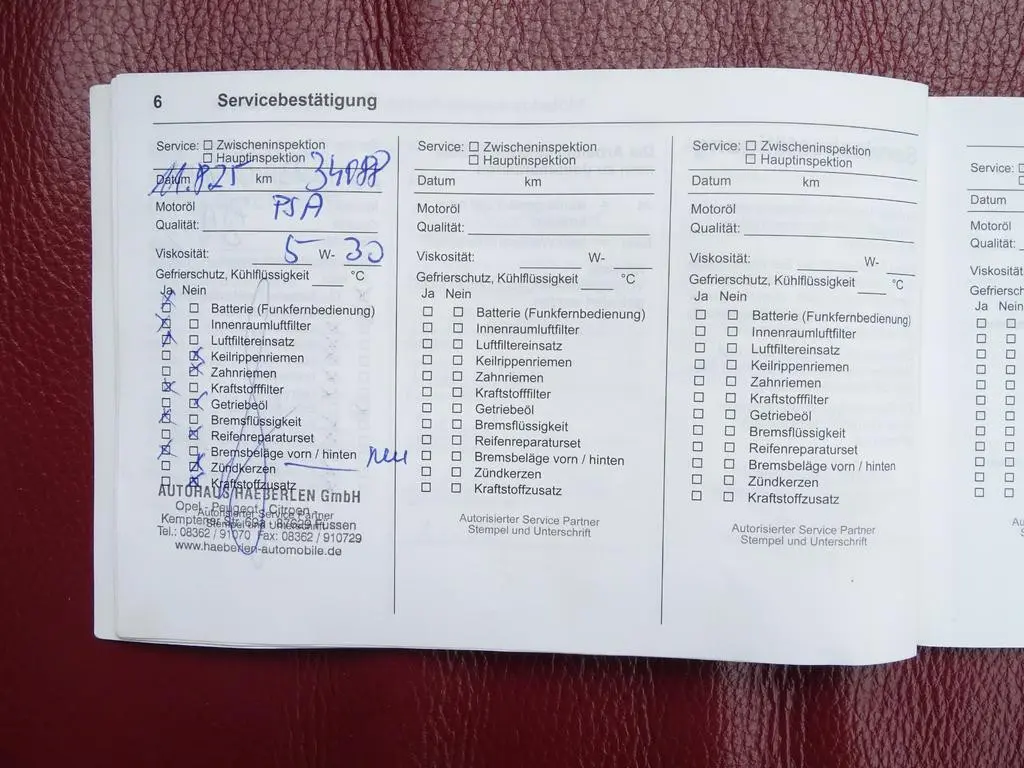 6 Servicebestätigung
Service: Zwischeninspektion
Hauptinspektion
Datum 11.8.25 km
Motoröl PSA
Qualität:
Viskosität: 5 W- 30
Gefrierschutz, Kühlflüssigkeit °C
Ja Nein
Batterie (Funkfernbedienung)
Innenraumluftfilter
Luftfiltereinsatz
Keilrippenriemen
Zahnriemen
Kraftstofffilter
Getriebeöl
Bremsflüssigkeit
Reifenreparaturset
Bremsbeläge vorn / hinten neu
Zündkerzen
Kraftstoffzusatz
AUTOHAUS HAEBERLEN GmbH
Opel - Peugeot - Citroen
Autorisierter Service Partner
Kemptener Str. 69a · 87629 Füssen
Stempel und Unterschrift
Tel.: 08362 / 91070 Fax: 08362 / 910729
www.haeberlen-automobile.de
Service: Zwischeninspektion
Hauptinspektion
Datum km
Motoröl
Qualität:
Viskosität: W-
Gefrierschutz, Kühlflüssigkeit °C
Ja Nein
Batterie (Funkfernbedienung)
Innenraumluftfilter
Luftfiltereinsatz
Keilrippenriemen
Zahnriemen
Kraftstofffilter
Getriebeöl
Bremsflüssigkeit
Reifenreparaturset
Bremsbeläge vorn / hinten
Zündkerzen
Kraftstoffzusatz
Autorisierter Service Partner
Stempel und Unterschrift
Service: Zwischeninspektion
Hauptinspektion
Datum km
Motoröl
Qualität:
Viskosität: W-
Gefrierschutz, Kühlflüssigkeit °C
Ja Nein
Batterie (Funkfernbedienung)
Innenraumluftfilter
Luftfiltereinsatz
Keilrippenriemen
Zahnriemen
Kraftstofffilter
Getriebeöl
Bremsflüssigkeit
Reifenreparaturset
Bremsbeläge vorn / hinten
Zündkerzen
Kraftstoffzusatz
Autorisierter Service Partner
Stempel und Unterschrift
Service:
Datum
Motoröl
Qualität:
Viskosität
Gefriersch
Ja Nein